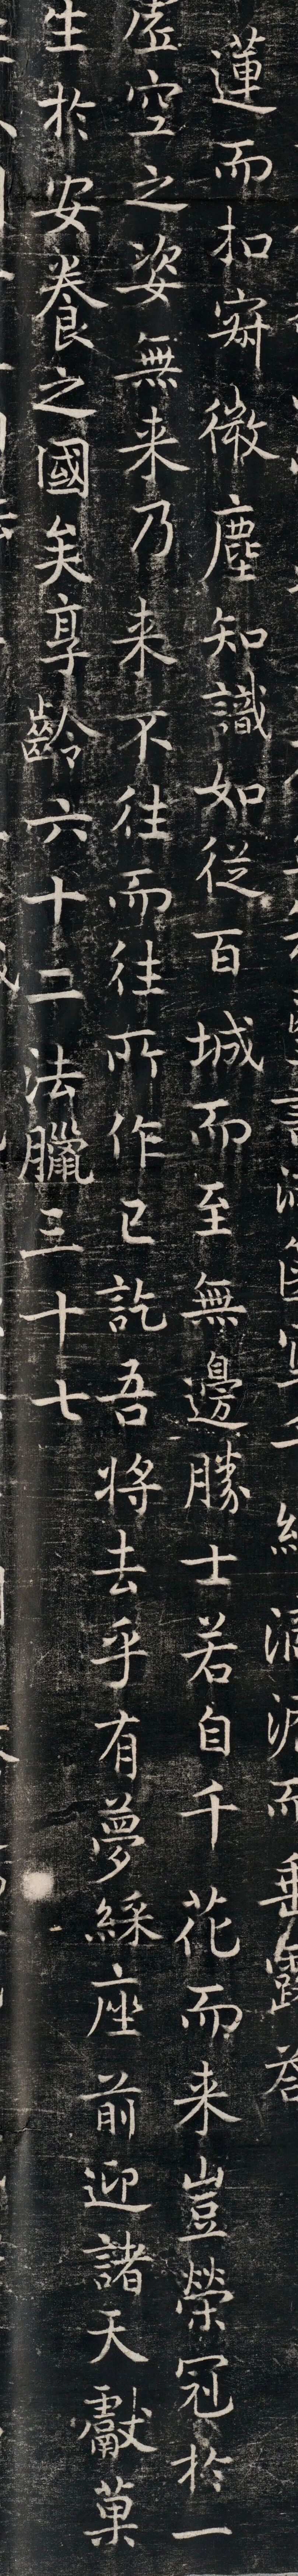 蓮而扣寂微塵知識如從百城而至無邊勝士若自千花而来豈榮冠於一
虛空之姿無来乃来不住而往所作已訖吾将去乎有夢綵座前迎諸天獻菓
生於安養之國矣享齡六十二法臘三十七